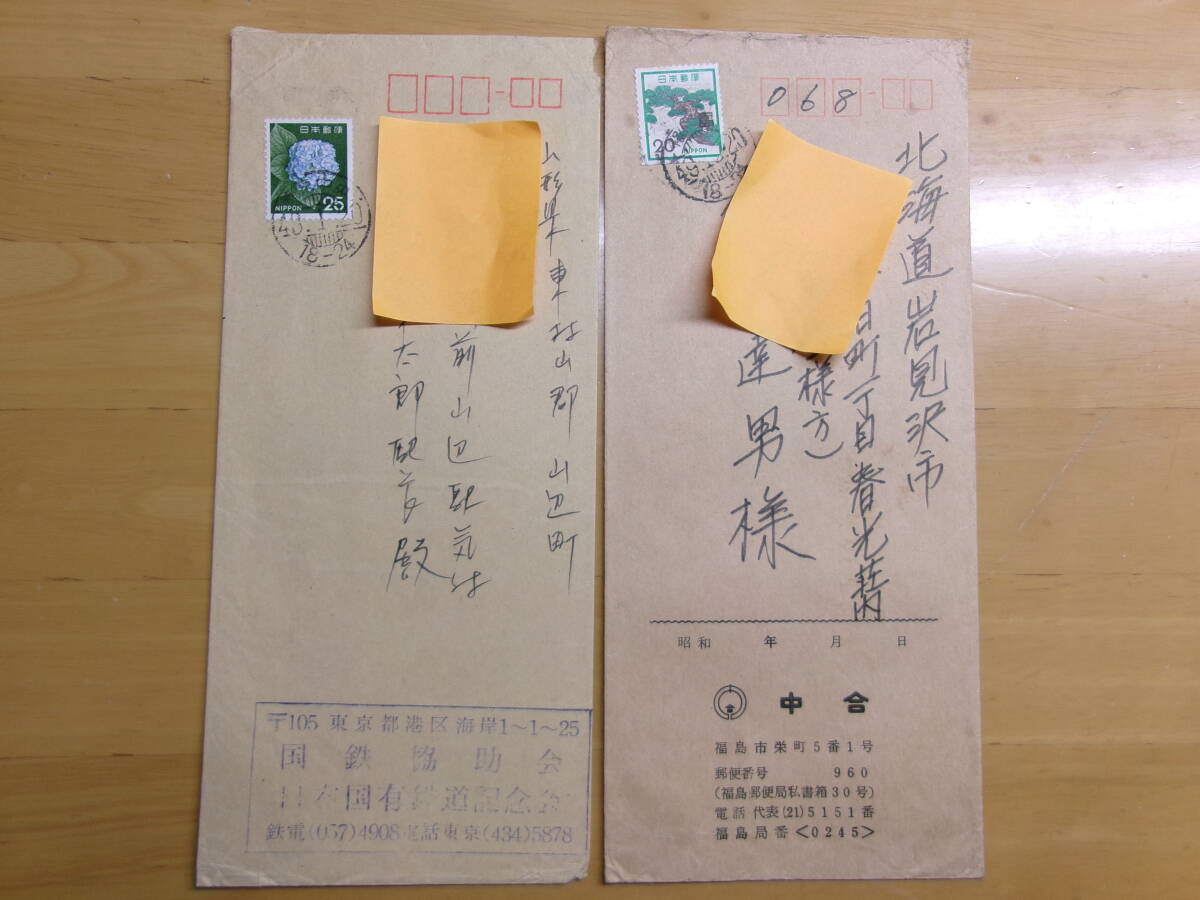 日本郵便
NIPPON 25
18-24
山形県東村山郡山辺町
前山辺駅気付
太郎駅長殿
〒105 東京都港区海岸1~1~25
国鉄協助会
日本国有鉄道記念会
鉄電(057)4908 電話東京(434)5878
日本郵便
20
NIPPON
18-24
068
北海道岩見沢市
町一丁目春光荘内
様方)
達男様
昭和 年 月 日
中合
福島市栄町5番1号
郵便番号 960
(福島郵便局私書箱30号)
電話 代表(21)5151番
福島局番<0245>